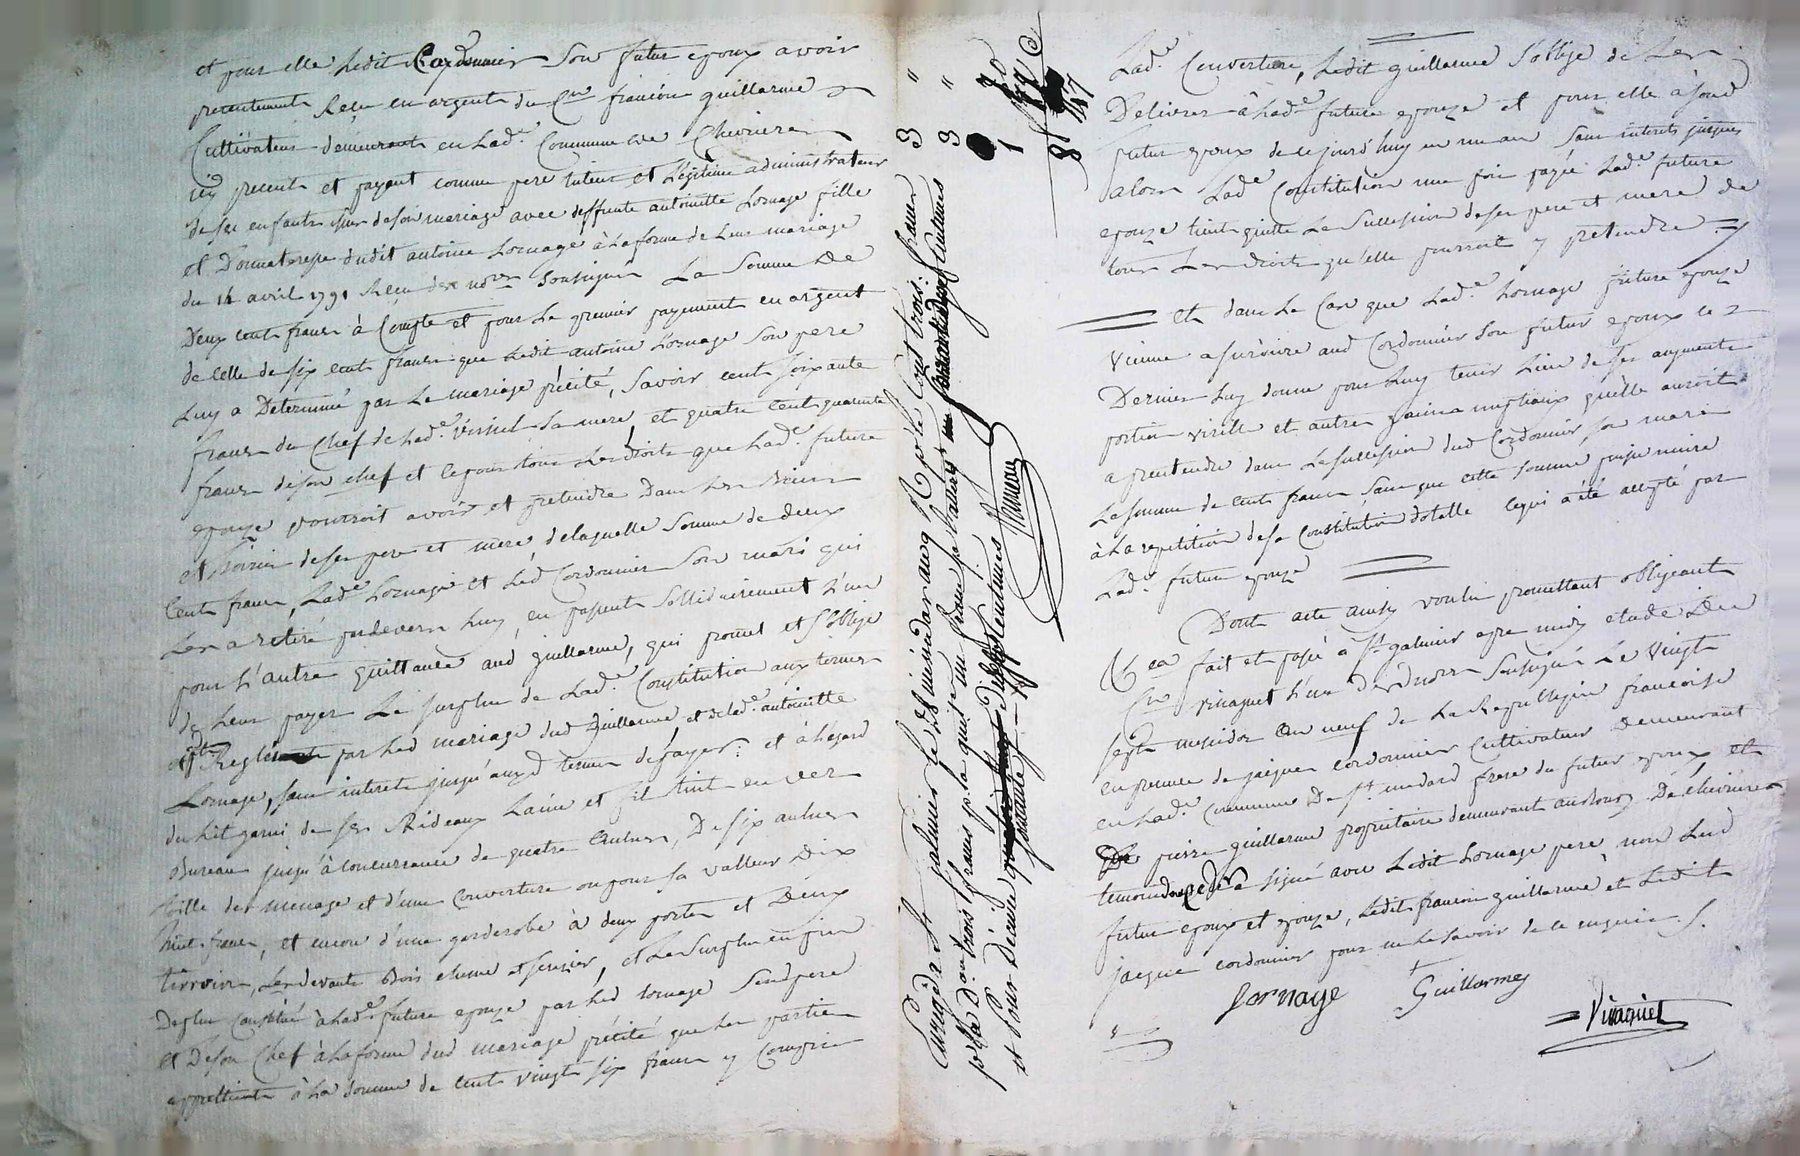 et pour elle ledit Cordonnier son futur epoux avoir
presentement Reçu en argent du Cen françois guillarme
Cultivateur demeurant en lad.e Commune de Chevrieres
icy present et payant comme pere tuteur et légitime administrateur
de ses enfants issus de son mariage avec deffunte antoinette Lornage fille
et Donnateresse dudit antoine Lornage à la forme de leur mariage
du 14 avril 1791 Reçu des nores soussignés La somme De
Deux cent francs à Compte et pour le premier payement en argent
de celle de six cent francs que ledit antoine Lornage son pere
Luy a Determiné par le mariage précité, savoir cent soixante
francs du Chef de lad.e sa mere, et quatre cent quarante
francs de son chef et ce pour tous les droits que lad.e future
epouze pourroit avoir et pretendre Dans les Biens
et hoiries de ses pere et mere de laquelle somme de deux
Cent francs, Lad.e Lornage et led Cordonnier son mari qui
Les a retiré pardevers luy, en passent sollidairement l'un
pour l'autre quittance aud guillarme, qui promet et s'oblige
de leur payer Le surplus de lad.e Constitution aux termes
Reglés par led mariage dud Guillarme et de lad.e antoinette
Lornage, sans interets jusqu'auxd termes de payer: et à l'égard
du lit garni de ses Rideaux Laine et fil tint en verd
Bureau jusqu'à concurrance de quatre Aulnes, De six aulnes
toille de menage et d'une Couverture ou pour sa valleur Dix
huit francs, et encore d'une garderobe à deux portes et Deux
tirroirs, Les devants Bois chene et serisier, et le surplus en pin
De plus Constitué à lad.e future epouze par led Lornage son pere
et De son Chef à la forme dud mariage précité que les parties
apprettient à la somme de cent vingt six francs y Compris
Enregistré à St galmier le 28 messidor an 9 R. pr le cont trois francs
pr la D.on trois francs pr la quitce un franc
et pour Décime
Rameau
3 "
3 "
1
8
Lad.e Couverture, Ledit guillarme s'oblige de les
Delivrer à lad.e future epouze et pour elle à sond
futur epoux de ce jourd'huy en un an sans interets jusques
alors Lad.e Constitution une fois payée Lad.e future
epouze tient quitte La succession de ses pere et mere de
tous Les droits qu'elle pourroit y pretendre
Et dans le Cas que Lad.e Lornage future epouze
vienne a survivre aud Cordonnier son futur epoux ce
Dernier Luy donne pour luy tenir Lieu de ses augments
portion virille et autres gains nuptiaux qu'elle auroit
a prettendre dans la succession dud Cordonnier, son mari
La somme de cent francs sans que cette somme puisse nuire
à la repetition de sa Constitution dotalle ce qui a été accepté par
Lad.e future epouze
Dont acte ainsy voulu promettant obligeant
&ca fait et passé à St galmier apres midy etude Du
Cen Viraguet l'un des nores soussignés Le vingt
sept messidor an neuf de La Republique françoise
en presence de jacques cordonnier Cultivateur demeurant
en Lad.e Commune De St medard frere du futur epoux, et
pierre guillarme propriétaire demeurant au bourg De chevrieres
temoins signé avec Ledit Lornage pere non Led
futur epoux et epouze, Ledit françois guillarme et Ledit
jacques cordonnier pour ne le savoir de ce enquis S.
Lornage
Guillarmes
Viraguet